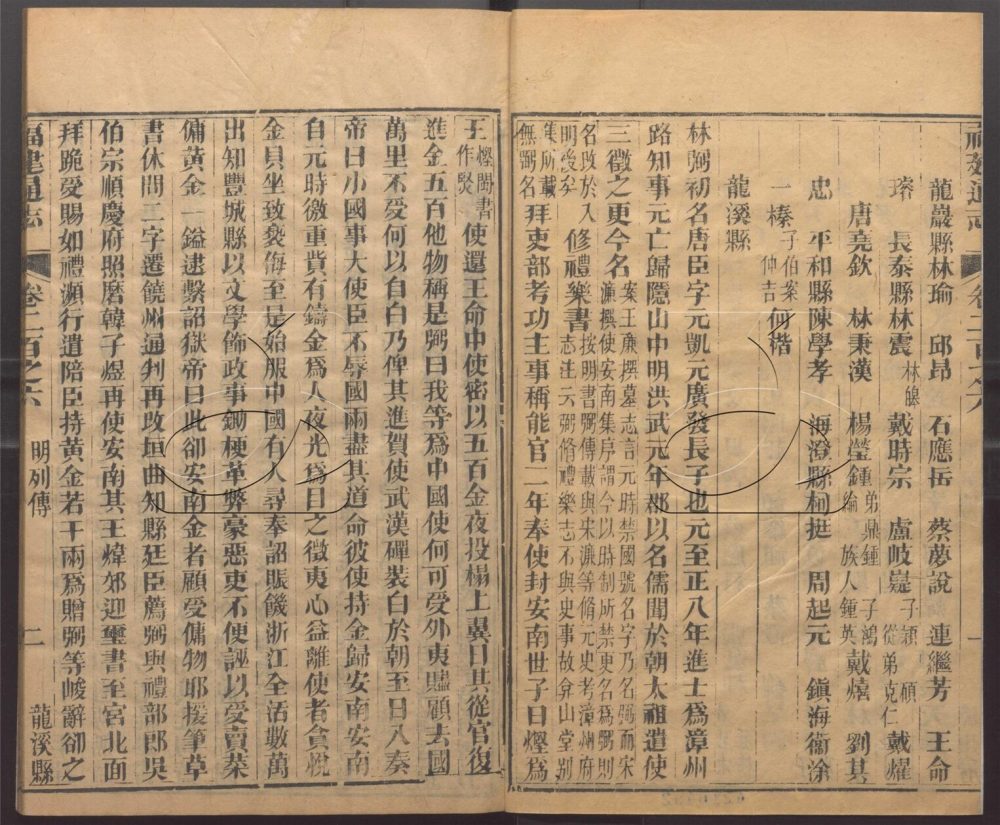 福建通志 卷二百之六 一
龍巖縣林瑜 邱昂 石應岳 蔡夢說 連繼芳 王命
璿 長泰縣林震 林馥 戴時宗 盧岐嶷 子潁 碩 從弟克仁 戴燿
唐堯欽 林秉漢 楊瑩鍾 弟鼎鍾 綸 族人鍾英 子鴻 戴熺 劉其
忠 平和縣陳學孝 海澄縣柯挺 周起元 鎭海衞涂
一榛 子伯案 仲吉 何楷
龍溪縣
林弼初名唐臣字元凱元廣發長子也元至正八年進士爲漳州
路知事元亡歸隱山中明洪武元年郡以名儒聞於朝太祖遣使
三徵之更今名 案王廉撰墓志言元時禁國號名字乃名弼而宋濂撰使安南集序謂今以時制所禁更名爲弼則
名改於入明後矣 修禮樂書 按明書弼傳載與宋濂等脩元史考漳州府志注云弼脩禮樂志不與史事故弇山堂別
集所載無弼名 拜吏部考功主事稱能官二年奉使封安南世子日熞爲
王 熞閩書作熞 使還王命中使密以五百金夜投榻上翼日其從官復
進金五百他物稱是弼曰我等爲中國使何可受外夷贐顧去國
萬里不受何以自白乃俾其進賀使武漢磾裝白於朝至日入奏
帝曰小國事大使臣不辱國兩盡其道命彼使持金歸安南安南
自元時徵重貲有鑄金爲人夜光爲目之徵夷心益離使者貪悅
金貝坐致褻侮至是始服中國有人尋奉詔賑饑浙江全活數萬
出知豐城縣以文學飾政事鋤梗革弊豪惡吏不便誣以受賣菜
傭黃金一鎰逮繫詔獄帝曰此卻安南金者顧受傭物耶援筆草
書休問二字遷饒州通判再改垣曲知縣廷臣薦弼與禮部郎吳
伯宗順慶府照磨韓子煜再使安南其王煒郊迎璽書至宮北面
拜跪受賜如禮瀕行遣陪臣持黃金若干兩爲贈弼等峻辭卻之
福建通志 卷二百之六 明列傳 二 龍溪縣